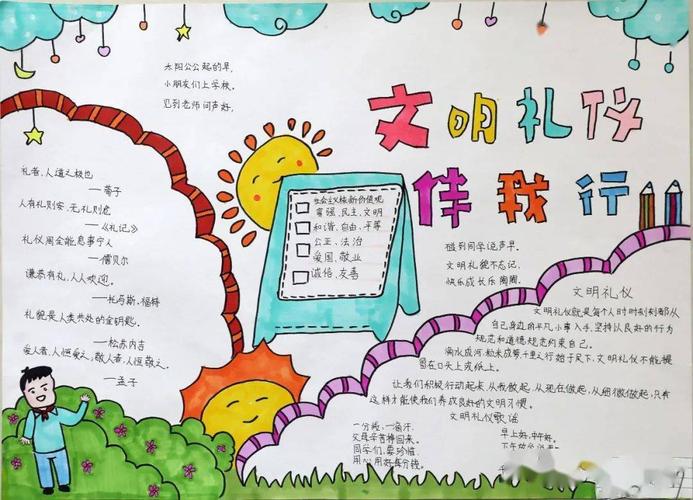 文明礼仪
伴我行
太阳公公起的早,
小朋友们上学校。
见到老师问声好,
礼者,人道之极也
——荀子
人有礼则安,无礼则危
——《礼记》
礼仪周全能息事宁人
——儒贝尔
谦恭有礼,人人欢迎。
——托马斯·福特
礼貌是人类共处的金钥匙。
——松苏内吉
爱人者,人恒爱之,敬人者,人恒敬之。
——孟子
社会主义核心价值观
富强、民主、文明
和谐、自由、平等
公正、法治
爱国、敬业
诚信、友善
碰到同学说声早。
文明礼貌不忘记,
快乐成长乐陶陶。
文明礼仪
文明礼仪就是每个人时时刻刻都从
自己身边的平凡小事入手,坚持以良好的行为
规范和道德规范约束自己。
滴水成河,粒米成箩,千里之行始于足下,文明礼仪不能停
留在口头上或纸上。
让我们积极行动起来,从我做起,从现在做起,从细微做起,只有
这样才能使我们养成良好的文明习惯。
文明礼仪歌谣
一分钱,一滴汗,
父母辛苦挣回来。
同学们,要珍惜,
用心用好每分钱。
早上好,中午好,